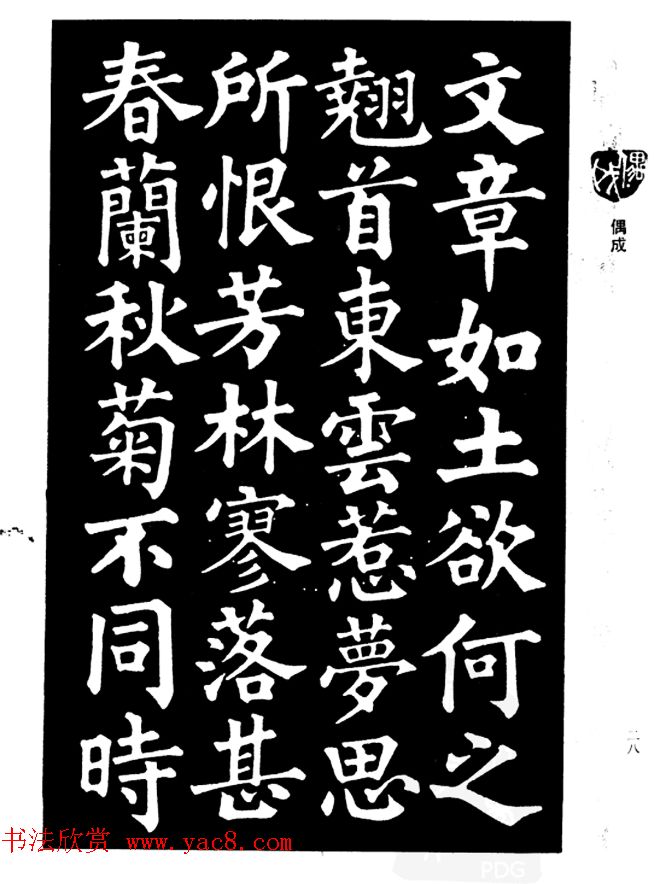 文章如土欲何之
翹首東雲惹夢思
所恨芳林寥落甚
春蘭秋菊不同時
偶成
偶成
二八
书法欣赏 www.yac8.com
PDG